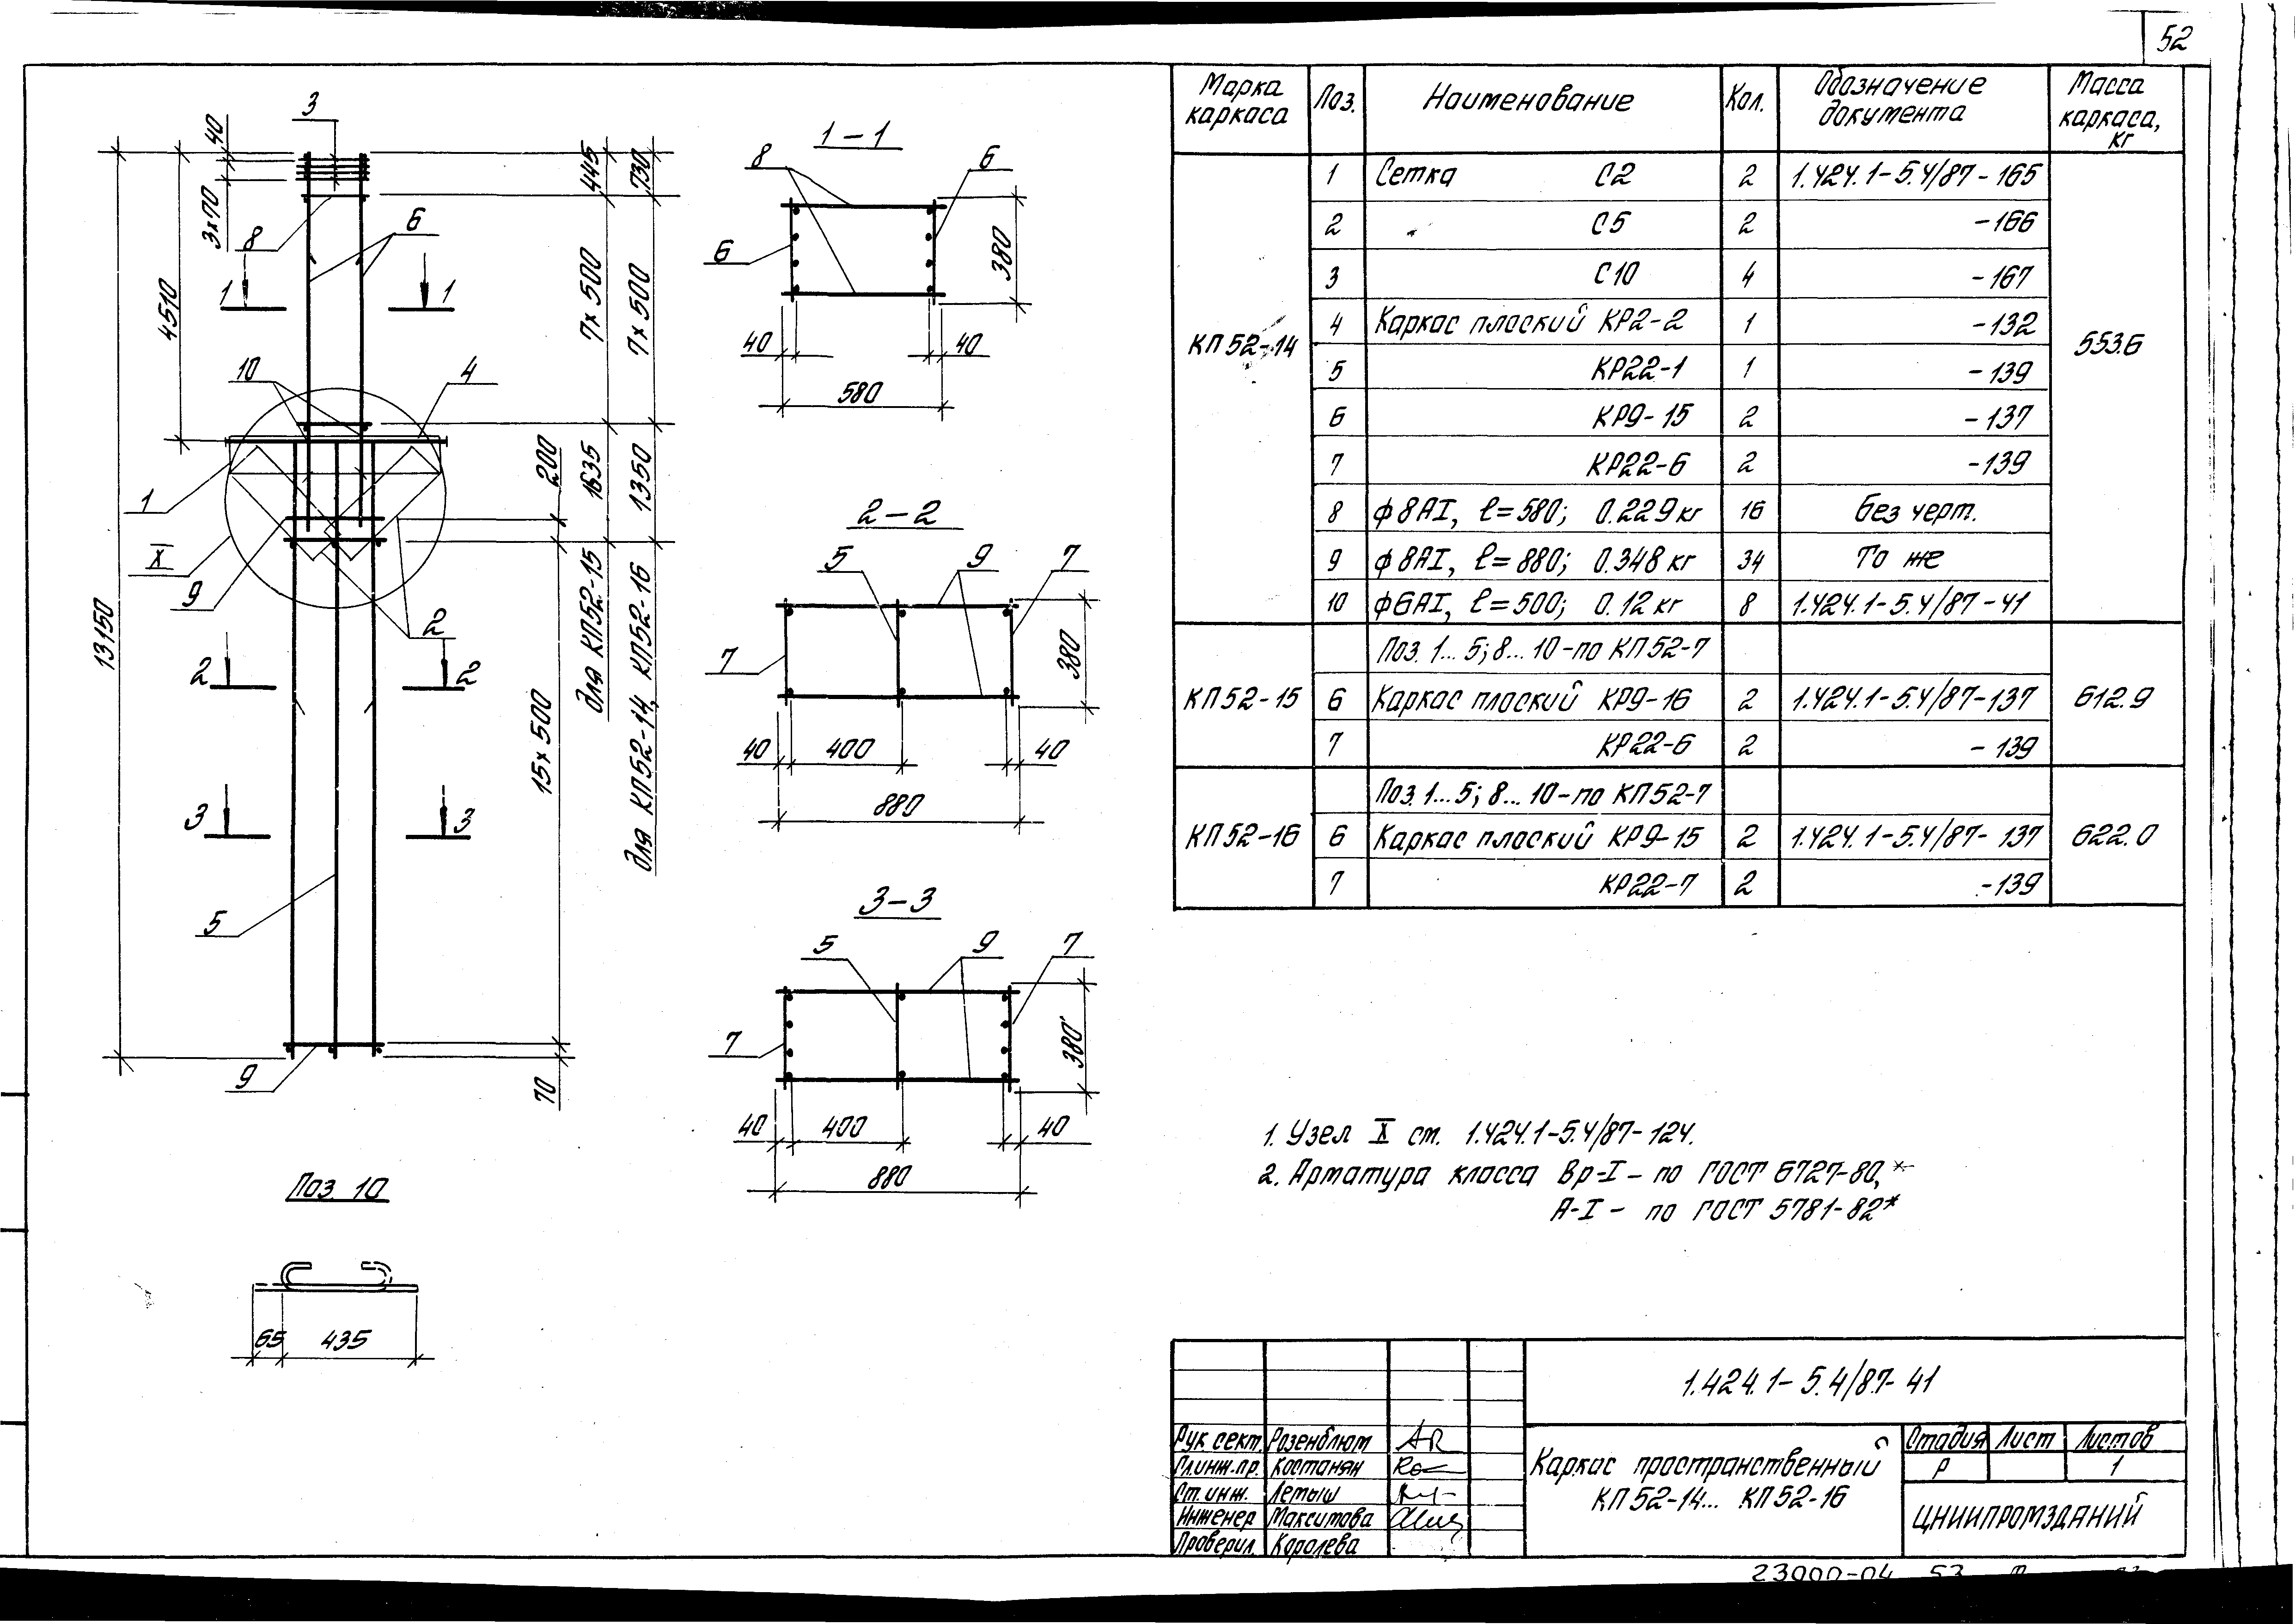 52
3
40
3×70
8
6
1
1
4510
10
4
1
X
9
2
13150
2
2
3
3
5
9
70
15×500
200
445
730
7×500
7×500
1635
1350
для КП52-15
для КП52-14, КП52-16
Поз. 10
65
435
1-1
8
6
6
380
40
40
580
2-2
5
9
7
7
380
40
400
40
880
3-3
5
9
7
7
380
40
400
40
880
Марка каркаса
Поз.
Наименование
Кол.
Обозначение документа
Масса каркаса, кг
КП52-14
553.6
1 Сетка С2 2 1.424.1-5.4/87-165
2 " С5 2 -166
3 С10 4 -167
4 Каркас плоский КР2-2 1 -132
5 КР22-1 1 -139
6 КР9-15 2 -137
7 КР22-6 2 -139
8 ф8АI, ℓ=580; 0.229 кг 16 Без черт.
9 ф8АI, ℓ=880; 0.348 кг 34 То же
10 ф6АI, ℓ=500; 0.12 кг 8 1.424.1-5.4/87-41
Поз. 1...5; 8...10-по КП52-7
КП52-15 6 Каркас плоский КР9-16 2 1.424.1-5.4/87-137 612.9
7 КР22-6 2 -139
Поз. 1...5; 8...10-по КП52-7
КП52-16 6 Каркас плоский КР9-15 2 1.424.1-5.4/87-137 622.0
7 КР22-7 2 -139
1. Узел X см. 1.424.1-5.4/87-124.
2. Арматура класса Вр-I - по ГОСТ 6727-80,*
А-I - по ГОСТ 5781-82*
1.424.1-5.4/87-41
Рук. сект. Розенблюм
Гл.инж.пр. Костанян
Ст. инж. Летыш
Инженер Макситова
Проверил. Королева
Каркас пространственный
КП52-14... КП52-16
Стадия Лист Листов
Р 1
ЦНИИПРОМЗДАНИЙ
23000-04 53